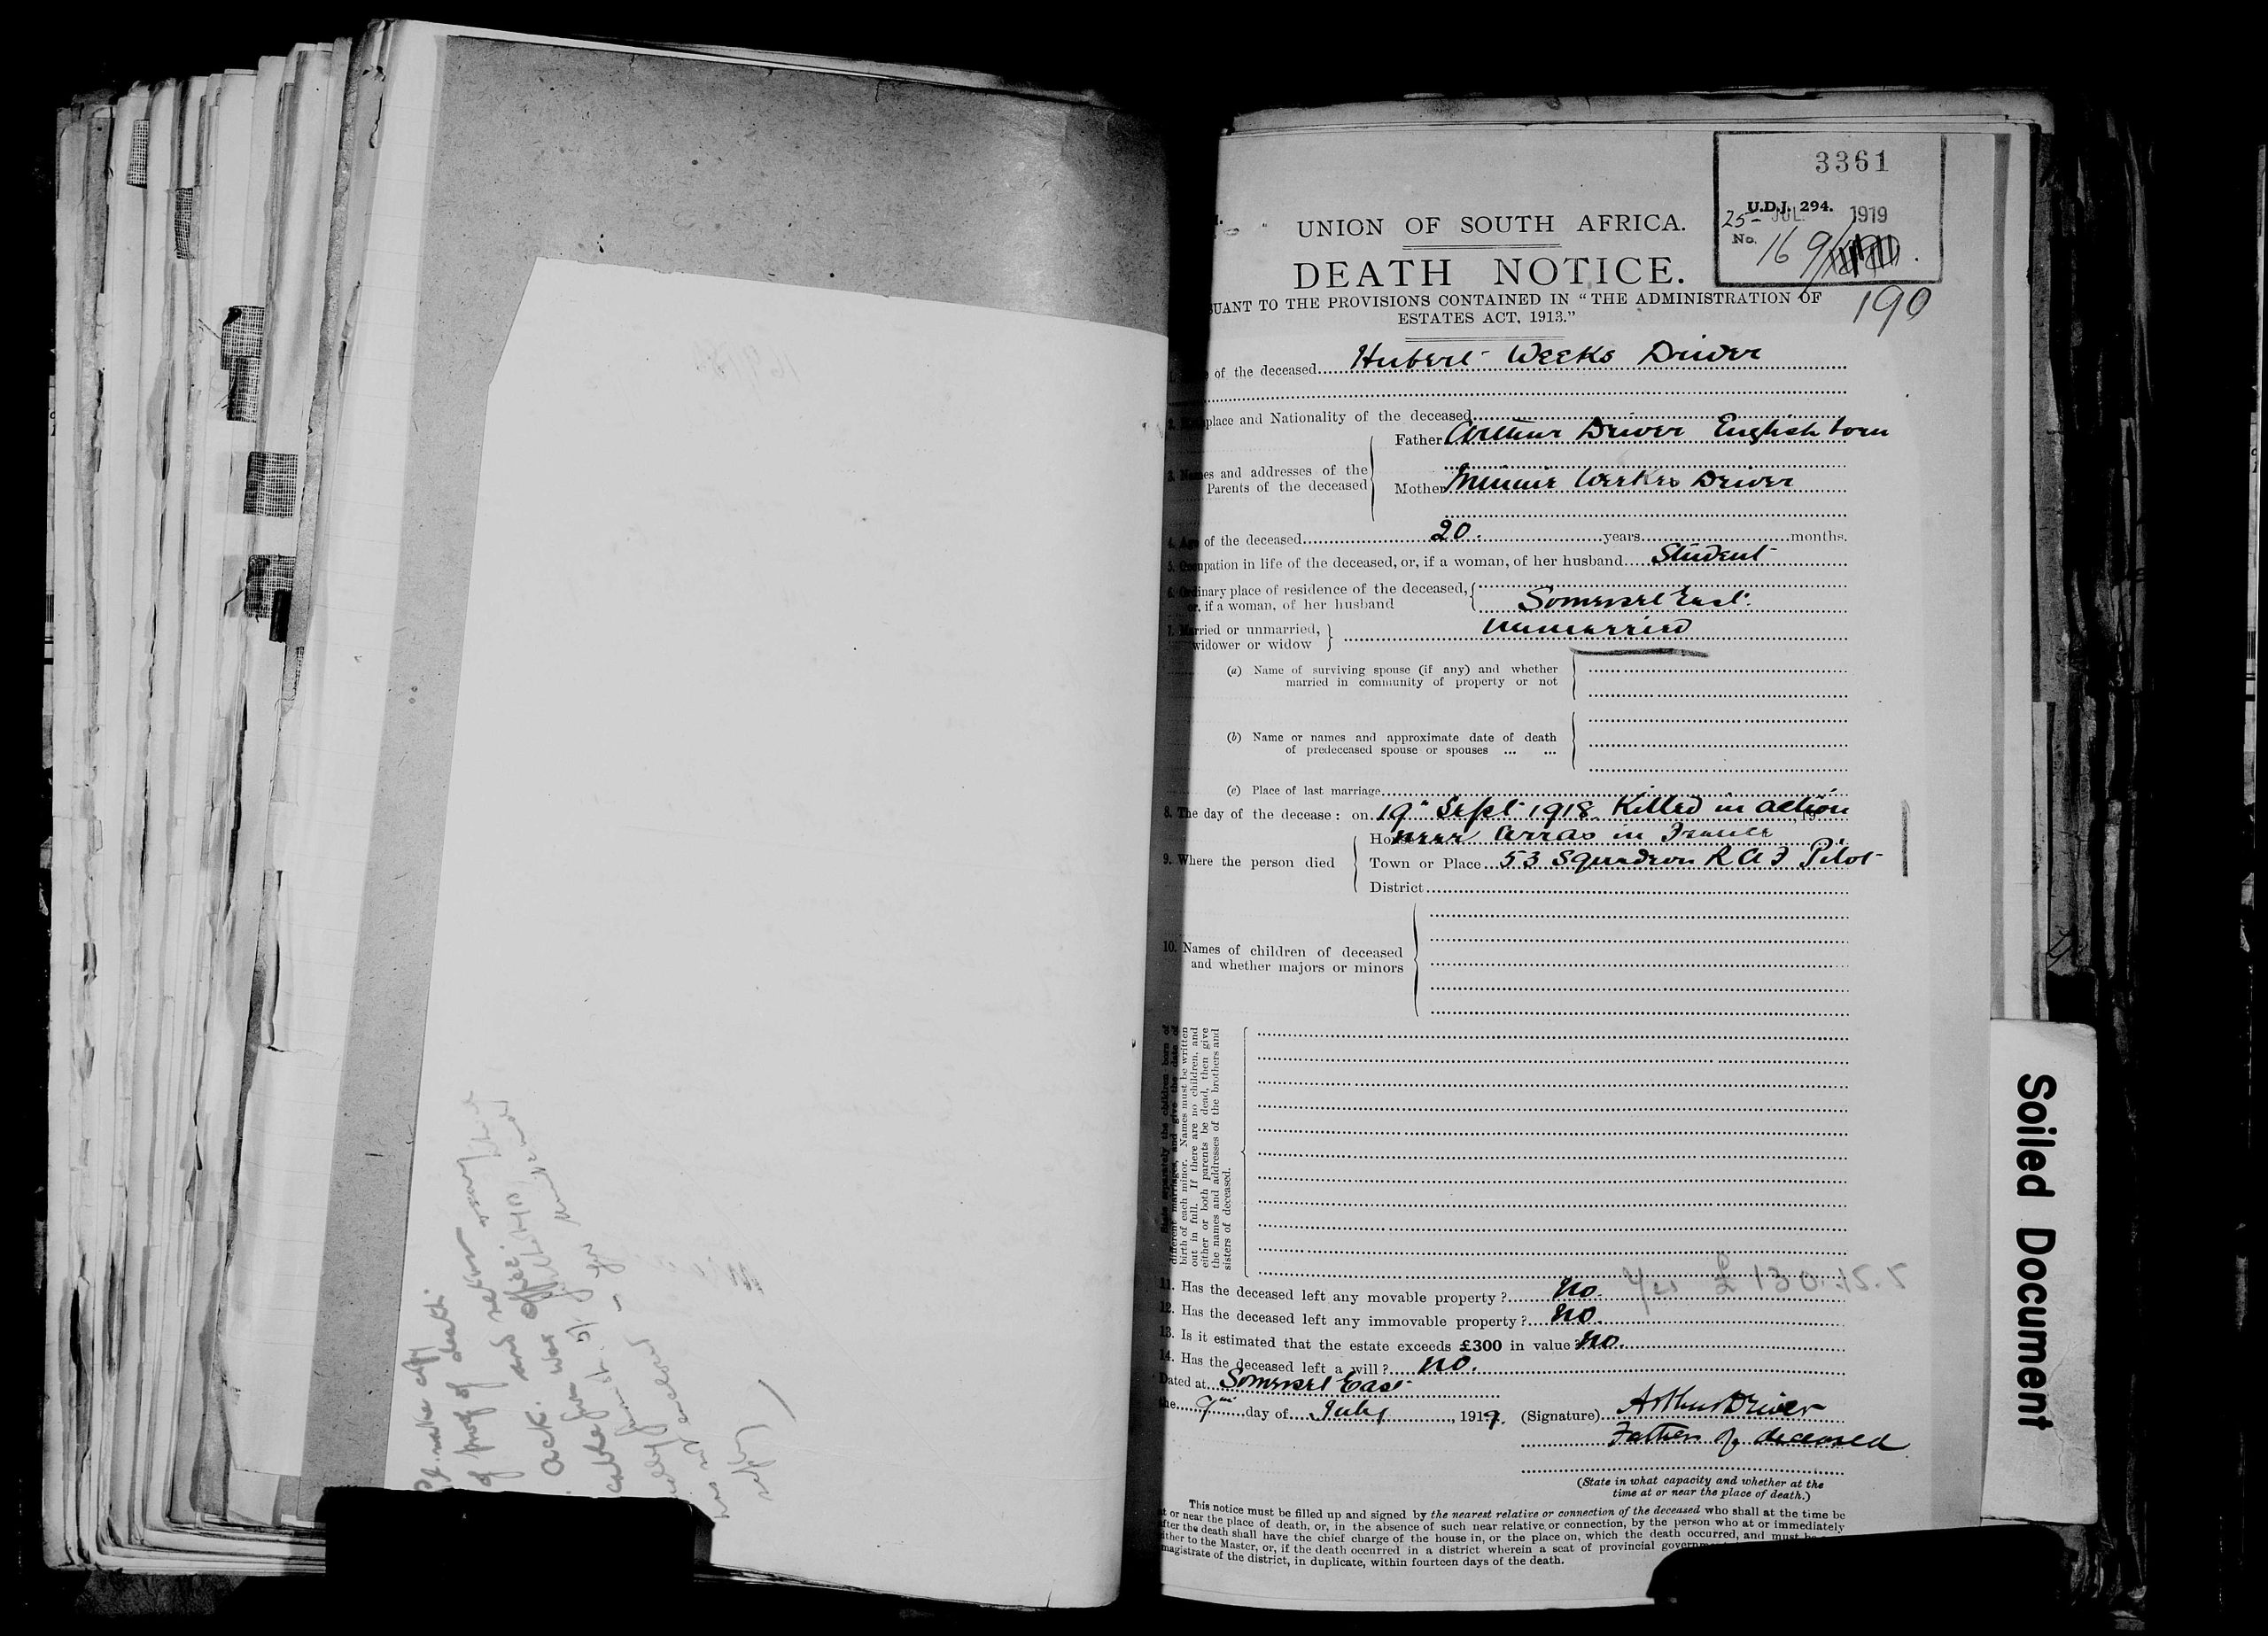 Pl. make copy
of proof of death
and return
Ack. War Office
3361
U.D.J. 294.
25- JUL. 1919
No. 169/
190
UNION OF SOUTH AFRICA.
DEATH NOTICE.
SUANT TO THE PROVISIONS CONTAINED IN "THE ADMINISTRATION OF
ESTATES ACT, 1913."
of the deceased Hubert Weeks Driver
place and Nationality of the deceased
3. Names and addresses of the Parents of the deceased
Father Arthur Driver English born
Mother Minnie Weekes Driver
4. Age of the deceased 20 years months.
5. Occupation in life of the deceased, or, if a woman, of her husband Student
6. Ordinary place of residence of the deceased,
or, if a woman, of her husband Somerset East.
7. Married or unmarried,
widower or widow Unmarried
(a) Name of surviving spouse (if any) and whether
married in community of property or not
(b) Name or names and approximate date of death
of predeceased spouse or spouses ... ...
(c) Place of last marriage
8. The day of the decease: on 19" Sept 1918 Killed in action , 19
9. Where the person died
House near Arras in France
Town or Place 53 Squadron R A F Pilot
District
10. Names of children of deceased
and whether majors or minors
State separately the children born of
different marriages, and give the date of
birth of each minor. Names must be written
out in full. If there are no children, and
either or both parents be dead, then give
the names and addresses of the brothers and
sisters of deceased.
11. Has the deceased left any movable property? No. Yes £130.15.5
12. Has the deceased left any immovable property? No.
13. Is it estimated that the estate exceeds £300 in value? No.
14. Has the deceased left a will? No.
Dated at Somerset East
the 9th day of July, 1919. (Signature) Arthur Driver
Father of deceased
(State in what capacity and whether at the
time at or near the place of death.)
This notice must be filled up and signed by the nearest relative or connection of the deceased who shall at the time be
at or near the place of death, or, in the absence of such near relative or connection, by the person who at or immediately
after the death shall have the chief charge of the house in, or the place on, which the death occurred, and must be
either to the Master, or, if the death occurred in a district wherein a seat of provincial
magistrate of the district, in duplicate, within fourteen days of the death.
Soiled Document